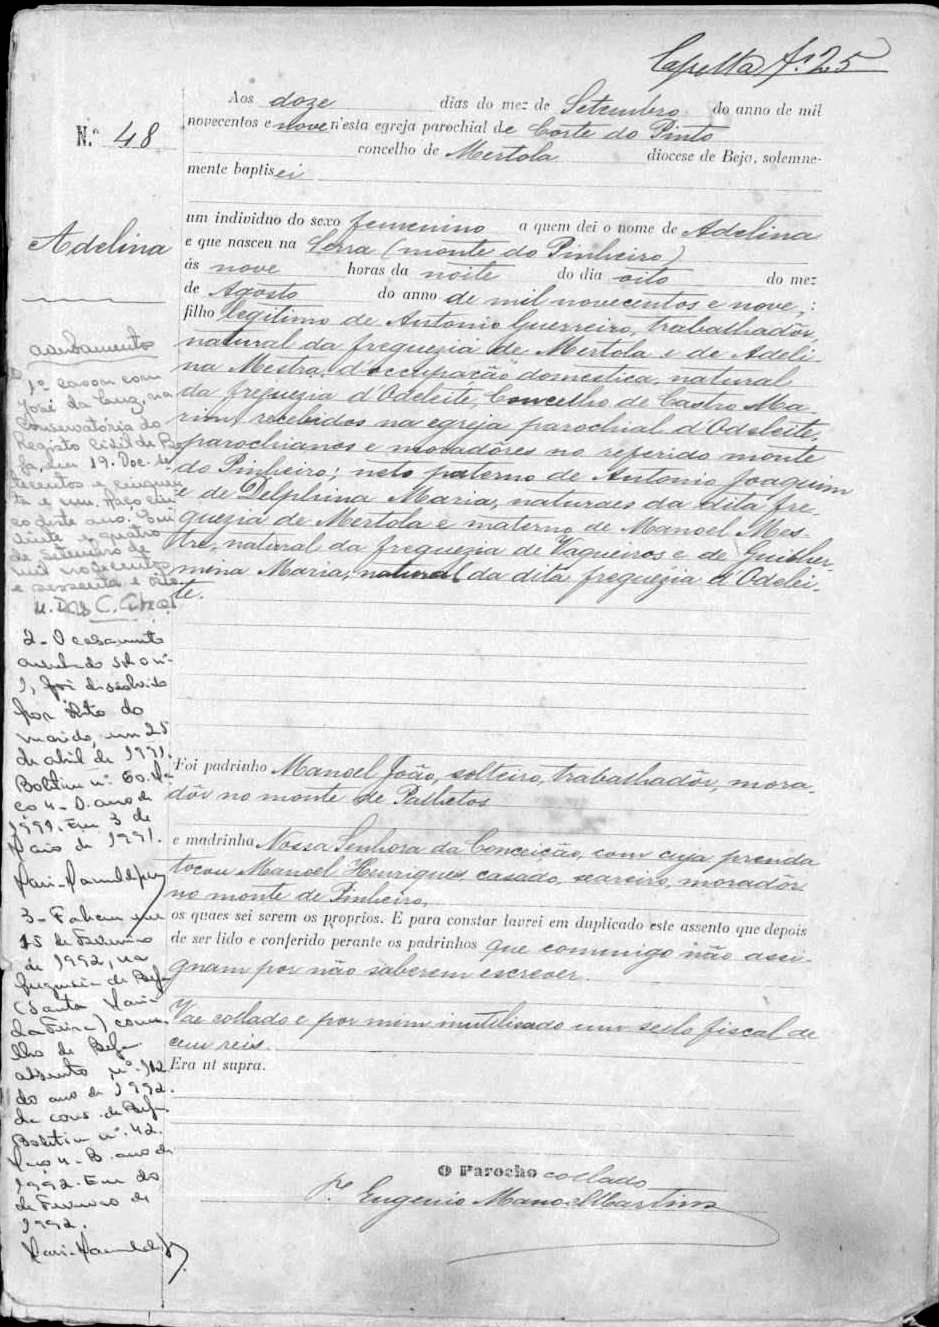 Capella f. 25
Nº 48
Adelina
Aos doze dias do mez de Setembro do anno de mil
novecentos e nove n'esta egreja parochial de Corte do Pinto
concelho de Mertola diocese de Beja, solemne-
mente baptisei
um individuo do sexo femenino a quem dei o nome de Adelina
e que nasceu na Serra (monte do Pinheiro)
ás nove horas da noite do dia oito do mez
de Agosto do anno de mil novecentos e nove,
filho legitimo de Antonio Guerreiro, trabalhadôr,
natural da freguezia de Mertola e de Adeli-
na Mestra, d'occupação domestica, natural
da freguezia d'Odeleite, Concelho de Castro Ma-
rim, recebidos na egreja parochial d'Odeleite,
parochianos e moradôres no referido monte
do Pinheiro; neto paterno de Antonio Joaquim
e de Delphina Maria, naturaes da dita fre-
guezia de Mertola e materno de Manoel Mes-
tre, natural da freguezia de Vaqueiros e de Guilher-
mina Maria, natural da dita freguezia d'Odelei-
te.
Foi padrinho Manoel João, solteiro, trabalhadôr, mora-
dôr no monte de Palhetos
e madrinha Nossa Senhora da Conceição, com cuja prenda
tocou Manoel Henriques casado, seareiro, moradôr
no monte de Pinheiro,
os quaes sei serem os proprios. E para constar lavrei em duplicado este assento que depois
de ser lido e conferido perante os padrinhos que comigo não assi-
gnam por não saberem escrever.
Vae collado e por mim inutilisado um sello fiscal de
cem reis.
Era ut supra.
O Parocho collado
Pe Eugenio Manoel Martins
averbamentos
1º casou com
José da Luz, na
Conservatória do
Registo Civil de Be-
ja, em 19. Dec. de
novecentos e cinquen-
ta e um. Maço cin-
co deste ano. Em
vinte e quatro
de Setembro de
mil novecentos
e sessenta e oito
2- O casamento
averbado sob o nº
1, foi dissolvido
por óbito do
marido, em 25
de abril de 1991.
Boletim nº 60. Ma-
ço 4-D. ano de
1991. Em 3 de
Maio de 1991.
3- Faleceu em
15 de Fevereiro
de 1992, na
freguesia de Beja
(Santa Maria
da Feira) conce-
lho de Beja.
assento nº 112
do ano de 1992.
da cons. de Beja.
Boletim nº 42.
Maço 4-B. ano de
1992. Em
de Fevereiro de
1992.